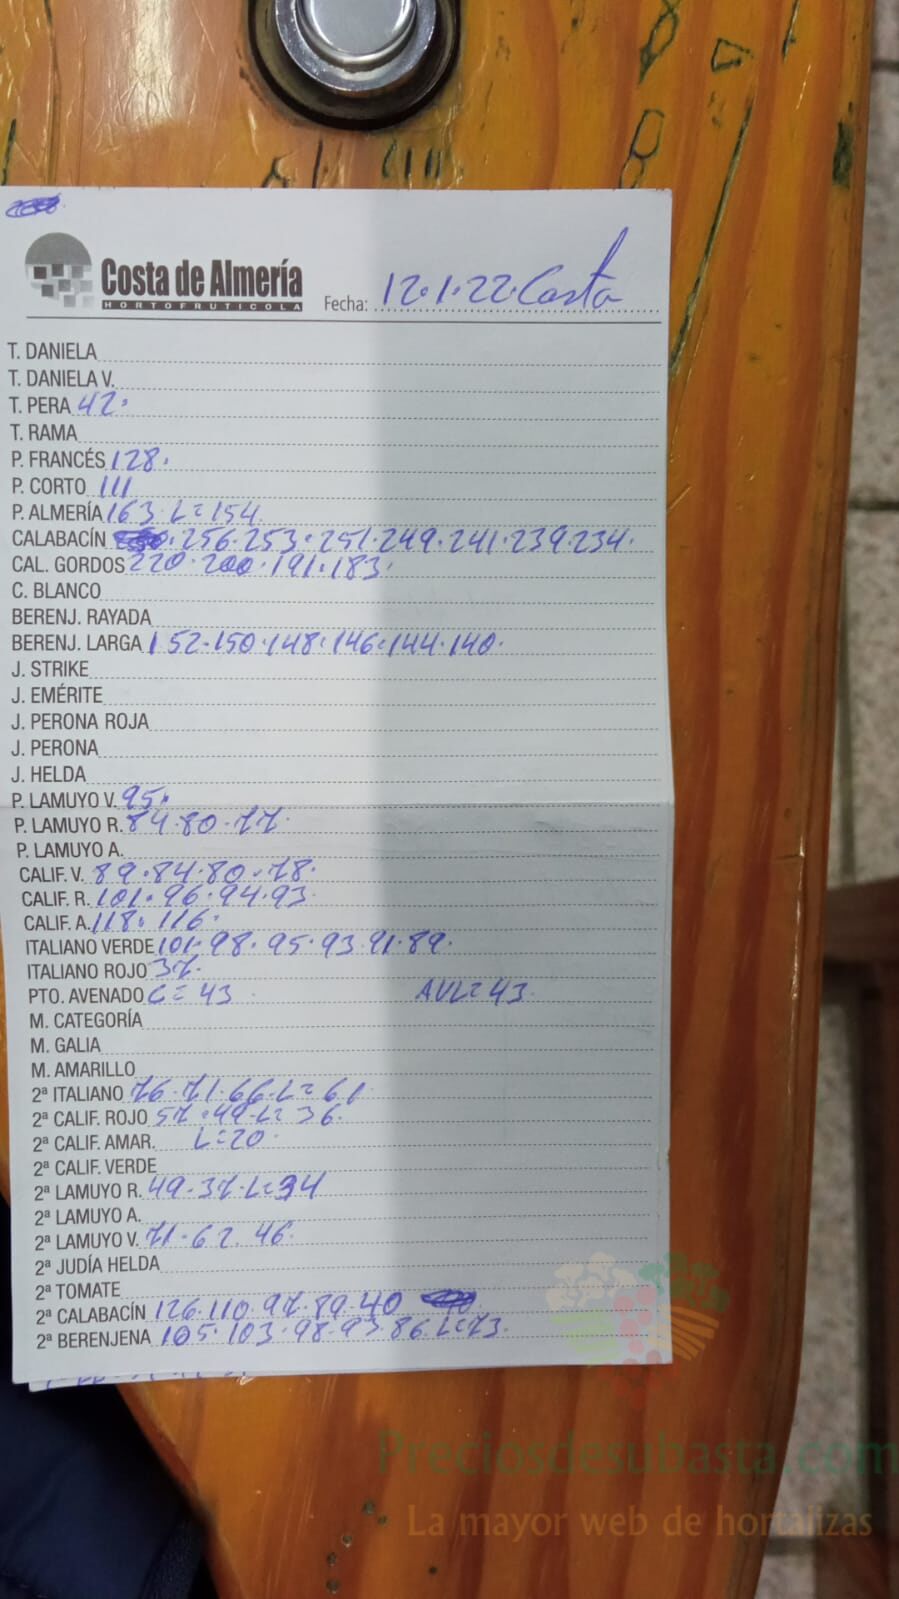 Costa de Almería
HORTOFRUTICOLA
Fecha: 12.1.22. Costa
T. DANIELA
T. DANIELA V.
T. PERA 42.
T. RAMA
P. FRANCÉS 128.
P. CORTO 111
P. ALMERÍA 163. L=154
CALABACÍN .256.253.251.249.241.239.234.
CAL. GORDOS 220.200.191.183.
C. BLANCO
BERENJ. RAYADA
BERENJ. LARGA 152.150.148.146.144.140.
J. STRIKE
J. EMÉRITE
J. PERONA ROJA
J. PERONA
J. HELDA
P. LAMUYO V. 95.
P. LAMUYO R. 84.80.77.
P. LAMUYO A.
CALIF. V. 89.84.80.78.
CALIF. R. 101.96.94.93.
CALIF. A. 118.116.
ITALIANO VERDE 101.98.95.93.91.89.
ITALIANO ROJO 37.
PTO. AVENADO C=43. AVL=43.
M. CATEGORÍA
M. GALIA
M. AMARILLO
2ª ITALIANO 76.71.66.L=61
2ª CALIF. ROJO 57.49.L=36.
2ª CALIF. AMAR. L=20.
2ª CALIF. VERDE
2ª LAMUYO R. 49.37.L=34
2ª LAMUYO A.
2ª LAMUYO V. 71.62.46.
2ª JUDÍA HELDA
2ª TOMATE
2ª CALABACÍN 126.110.97.89.40
2ª BERENJENA 105.103.98.93.86.L=73.
Preciosdesubasta.com
La mayor web de hortalizas